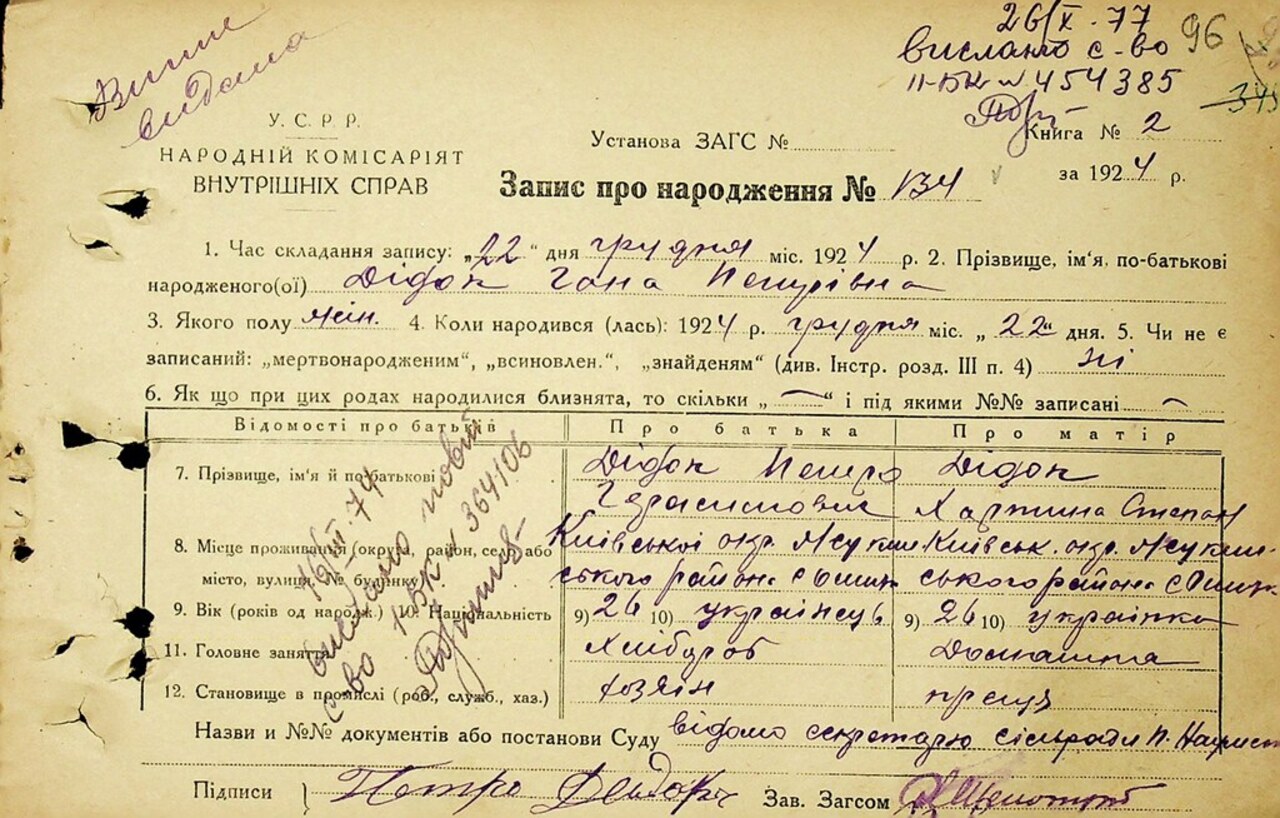 26/X-77
вислано с-во 96
ІІ-БК № 454385
345
Випис
видана
У. С. Р. Р.
НАРОДНІЙ КОМІСАРІЯТ
ВНУТРІШНІХ СПРАВ
Установа ЗАГС №
Книга № 2
за 1924 р.
Запис про народження № 134
1. Час складання запису: „22" дня грудня міс. 1924 р. 2. Прізвище, ім'я, по-батькові
народженого(ої) Дідок Гана Петрівна
3. Якого полу жін. 4. Коли народився (лась): 1924 р. грудня міс. „22" дня. 5. Чи не є
записаний: „мертвонародженим", „всиновлен.", „знайденям" (див. Інстр. розд. III п. 4) ні
6. Як що при цих родах народилися близнята, то скільки „—" і під якими №№ записані —
Відомості про батьків Про батька Про матір
7. Прізвище, ім'я й по-батькові Дідок Петро Дідок
Герасимович Харитина Степан
8. Місце проживання (округа, район, село або Київської окр. Київськ. окр.
місто, вулиця, № будинку) ського района с ського района с
9. Вік (років од народж.) 10. Національність 9) 26 10) українець 9) 26 10) українка
11. Головне заняття Хлібороб Домашня
12. Становище в промислі (роб., служб., хаз.) хозяін праця
вислано повий
с-во І-БК № 364106
Назви и №№ документів або постанови Суду відомо секретарю сільради п.
Підписи Петро Дєидок Зав. Загсом